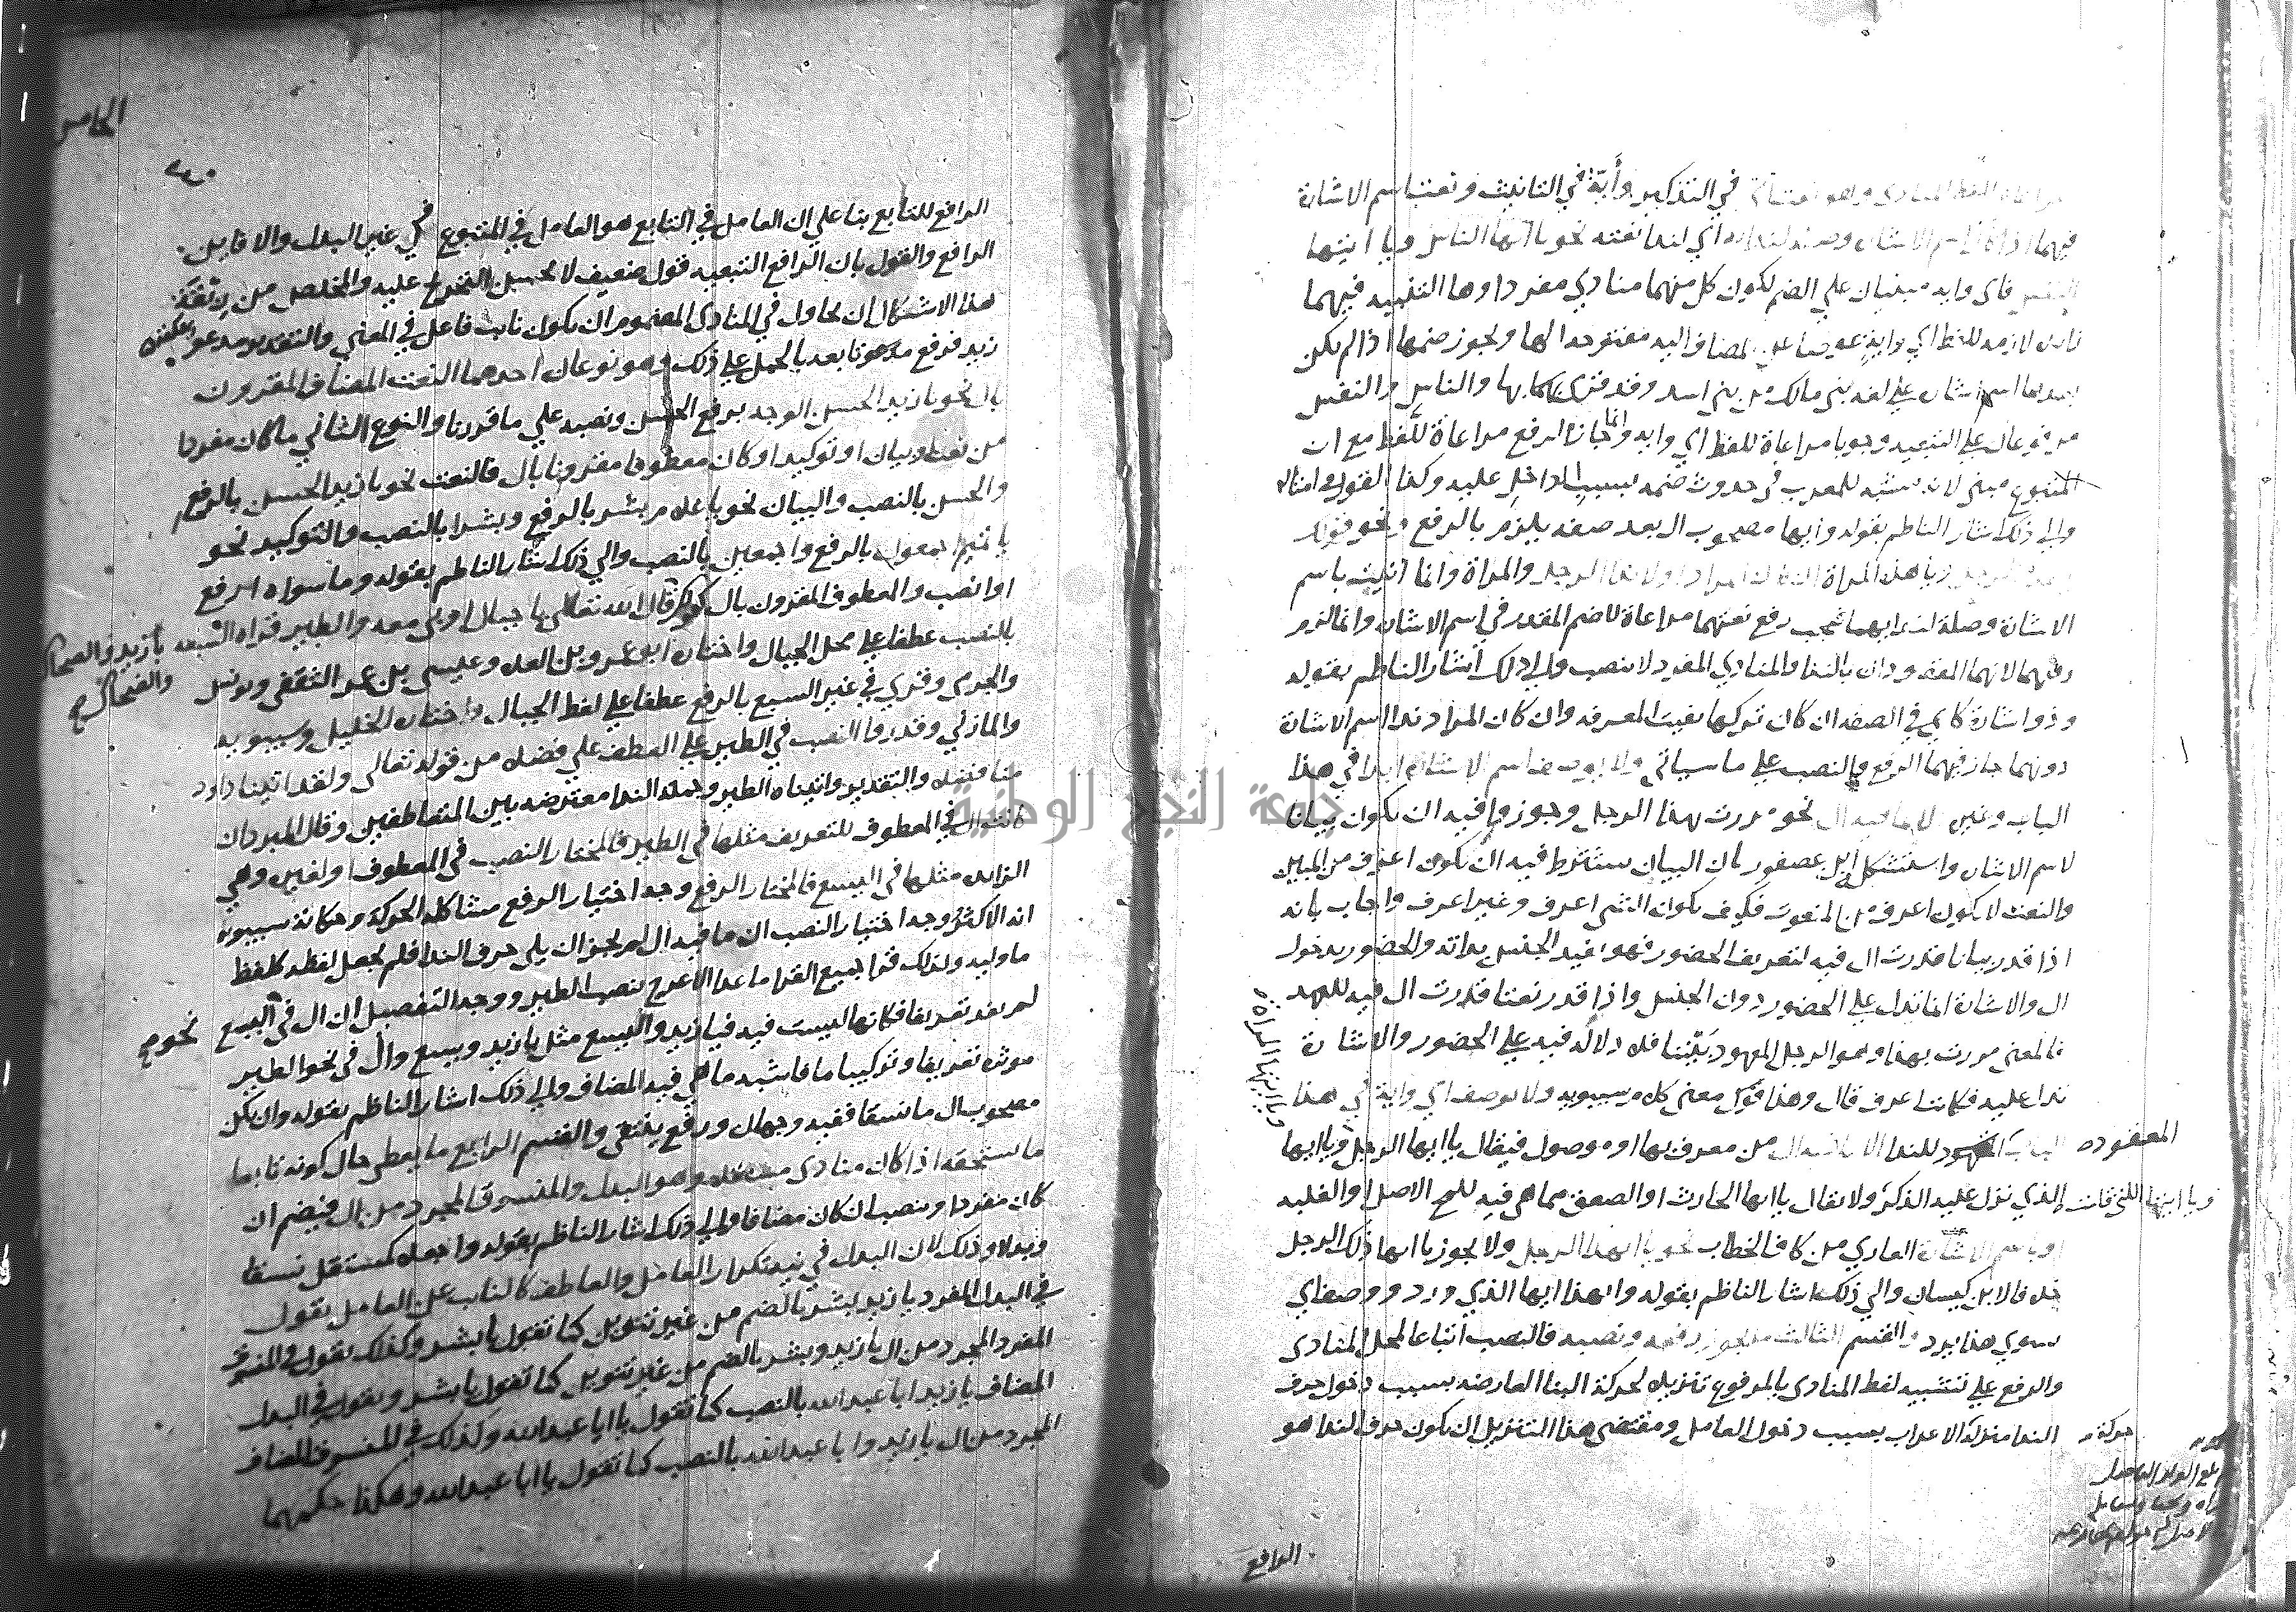 مراعاة للفظ المنادى وهو نعت أي في التذكير وأية في التانيث ونعت اسم الاشارة
فيهما اذا كان اسم الاشارة وصلة لندائه اي لندا نعته نحو يا ايها الناس ويا ايتها
النفس فاي واية مبنيان علي الضم لكون كل منهما منادي مفردا وها التنبيه فيهما
زائدة لازمة للفظ اي واية عوضا عن المضاف اليه مفتوحة الها ويجوز ضمها اذا لم يكن
بعدها اسم اشارة علي لغة بني مالك من بني اسد وقد قرئ بها والناس والنفس
مرفوعان علي التبعية وجوبا مراعاة للفظ اي واية وانما جاز الرفع مراعاة للفظ مع ان
المتبوع مبني لانه مشبه للمعرب في حدوث ضمه بسبب الداخل عليه وكذا القول في امثاله
والي ذلك اشار الناظم بقوله وايها مصحوب ال بعد صفه يلزم بالرفع ونحو قولك
يا هذا الرجل ويا هذه المراة اذا كان المراد اولا ندا الرجل والمراة وانما اتيت باسم
الاشارة وصلة لندايهما فيجب رفع نعتهما مراعاة للضم المقدر في اسم الاشارة وانما لزم
رفعهما لانهما المقصودان بالندا والمنادي المفرد لا ينصب والي ذلك اشار الناظم بقوله
وذو اشارة كاي في الصفه ان كان تركها يفيت المعرفه وان كان المراد ندا اسم الاشارة
دونهما جاز فيهما الرفع والنصب علي ما سياتي ولا يوصف اسم الاشارة ابدا في هذا
الباب وغيره الا بما فيه ال نحو مررت بهذا الرجل وجوزوا فيه ان يكون بيان
لاسم الاشارة واستشكله ابن عصفور بان البيان يشترط فيه ان يكون اعرف من المبين
والنعت لا يكون اعرف من المنعوت فكيف يكون الشي اعرف وغير اعرف واجاب بانه
اذا قدر بيانا قدرت ال فيه لتعريف الحضور فهو يفيد الجنس بذاته والحضور بدخول
ال والاشارة انما تدل علي الحضور دون الجنس واذا قدر نعتا قدرت ال فيه للعهد
فالمعنى مررت بهذا وهو الرجل المعهود بيننا فلا دلالة فيه علي الحضور والاشارة
تدل عليه فكانت اعرف قال وهذا قول معنى كلام سيبويه ولا يوصف اي واية في هذا
ويا ايتها المراة
المقصوده الباب للندا الا بما فيه ال من معرف بها او موصول فيقال يا ايها الرجل ويا ايها
ويا ايتها التي قامت الذي نزل عليه الذكر ولا يقال يا ايها الحارث او الصعق مما هي فيه للمح الاصل او الغلبه
او باسم الاشارة العاري من كاف الخطاب نحو يا ايهذا الرجل ولا يجوز يا ايها ذلك الرجل
خلافا لابن كيسان والي ذلك اشار الناظم بقوله وايهذا ايها الذي ورد ووصف اي
بسوي هذا يرد والقسم الثالث ما يجوز رفعه ونصبه فالنصب اتباعا لمحل المنادى
والرفع علي تشبيه لفظ المنادى بالمرفوع تنزيلا لحركة البنا العارضه بسبب دخول حرف
الندا منزلة حركة الاعراب بسبب دخول العامل ومقتضى هذا التنزيل ان يكون حرف الندا هو
الرافع
الخامس
الرافع للتابع بنا علي ان العامل في التابع هو العامل في المتبوع في غير البدل ولا قايل
الرافع والقول بان الرافع التبعيه قول ضعيف لا يحسن التخريج عليه والمخلص من
هذا الاشكال ان يحاول في المنادى المضموم ان يكون نايب فاعل في المعني والتقدير مدعو
زيد فرفع مدعونا بعد بالحمل علي ذلك وهو نوعان احدهما النعت المضاف المقرون
بال نحو يا زيد الحسن الوجه برفع الحسن ونصبه علي ما قدرنا والنوع الثاني ما كان مفردا
من نعت او بيان او توكيد او كان معطوفا مقرونا بال فالنعت نحو يا زيد الحسن بالرفع
والحسن بالنصب والبيان نحو يا غلام بشر بالرفع وبشرا بالنصب والتوكيد نحو
يا تميم اجمعون بالرفع واجمعين بالنصب والي ذلك اشار الناظم بقوله وما سواه ارفع
او انصب والمعطوف المقرون بال كقوله تعالى يا جبال اوبي معه والطير قراه السبعه يا زيد والضحاك
بالنصب عطفا علي محل الجبال واختاره ابو عمرو بن العلا وعيسى بن عمر الثقفي ويونس
والجرمي وقري في غير السبع بالرفع عطفا علي لفظ الجبال واختاره الخليل وسيبويه
والمازني وقدروا النصب في الطير علي العطف علي فضلا من قوله تعالى ولقد اتينا داود
منا فضلا والتقدير واتيناه الطير وجملة الندا معترضه بين المتعاطفين وقال المبرد ان
كانت ال في المعطوف للتعريف مثلها في الطير فالمختار النصب في المعطوف او لغيره وهي
الزايده مثلها في اليسع فالمختار الرفع وجه اختيار الرفع مشاكلة الحركة وحكاية سيبويه
انه الاكثر ووجه اختيار النصب ان ما فيه ال لم يجز ان يلي حرف الندا فلم يجعل لفظه كلفظ
ما وليه ولذلك قرا جميع القرا ما عدا الاعرج بنصب الطير ووجه التفصيل ان ال في نحو اليسع
لم يفد تعريفا فكانها ليست فيه فيا زيد واليسع مثل يا زيد ويسع وال في نحو الطير
موثره تعريفا وتركيبا ما فاشبه ما هي فيه المضاف والي ذلك اشار الناظم بقوله وان يكن
مصحوب ال ما نسقا ففيه وجهان ورفع ينتقى والقسم الرابع ما يعطى حال كونه تابعا
ما يستحقه اذا كان منادى مستقلا وهو البدل والمنسوق المجرد من ال فيضم ان
كان مفردا وينصب ان كان مضافا والي ذلك اشار الناظم بقوله واجعله كمستقل نسقا
وبدلا وذلك لان البدل في نية تكرار العامل والعاطف كالنايب عن العامل تقول
في البدل المفرد يا زيد بشر بالضم من غير تنوين كما تقول يا بشر وكذلك تقول في المنسوق
المفرد المجرد من ال يا زيد وبشر بالضم من غير تنوين كما تقول يا بشر وتقول في البدل
المضاف يا زيد ابا عبد الله بالنصب كما تقول يا ابا عبد الله وكذلك في المنسوق المضاف
المجرد من ال يا زيد وابا عبد الله بالنصب كما تقول يا ابا عبد الله وهكذا حكمهما
جامعة النجاح الوطنية